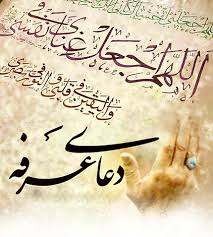 اللهم اجعل غنای فی نفسی
والیقین فی قلبی و النور فی بصری
دعای عرفه